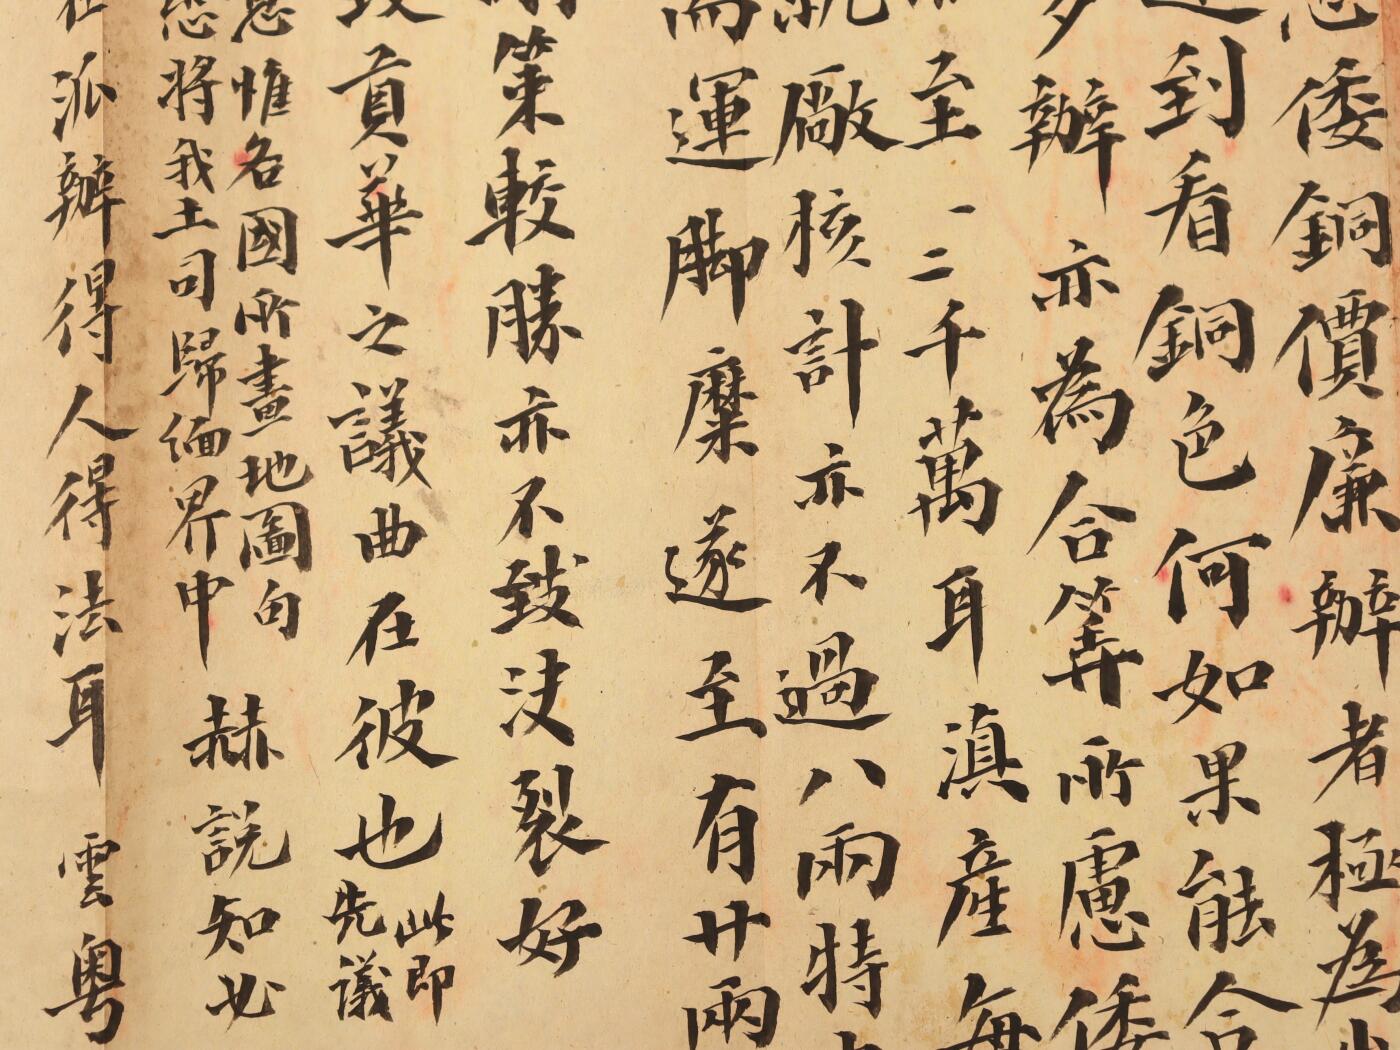 倭銅價廉辦者極為
到看銅色何如果能合
辦亦為合筭所慮倭
至一二千萬耳滇產每
就廠核計亦不過八兩特
運腳糜遂至有廿兩
策較勝亦不致決裂好
致貢華之議曲在彼也此即
先議
惟各國所畫地圖句
將我土司歸緬界中
赫說知必
派辦得人得法耳雲粵